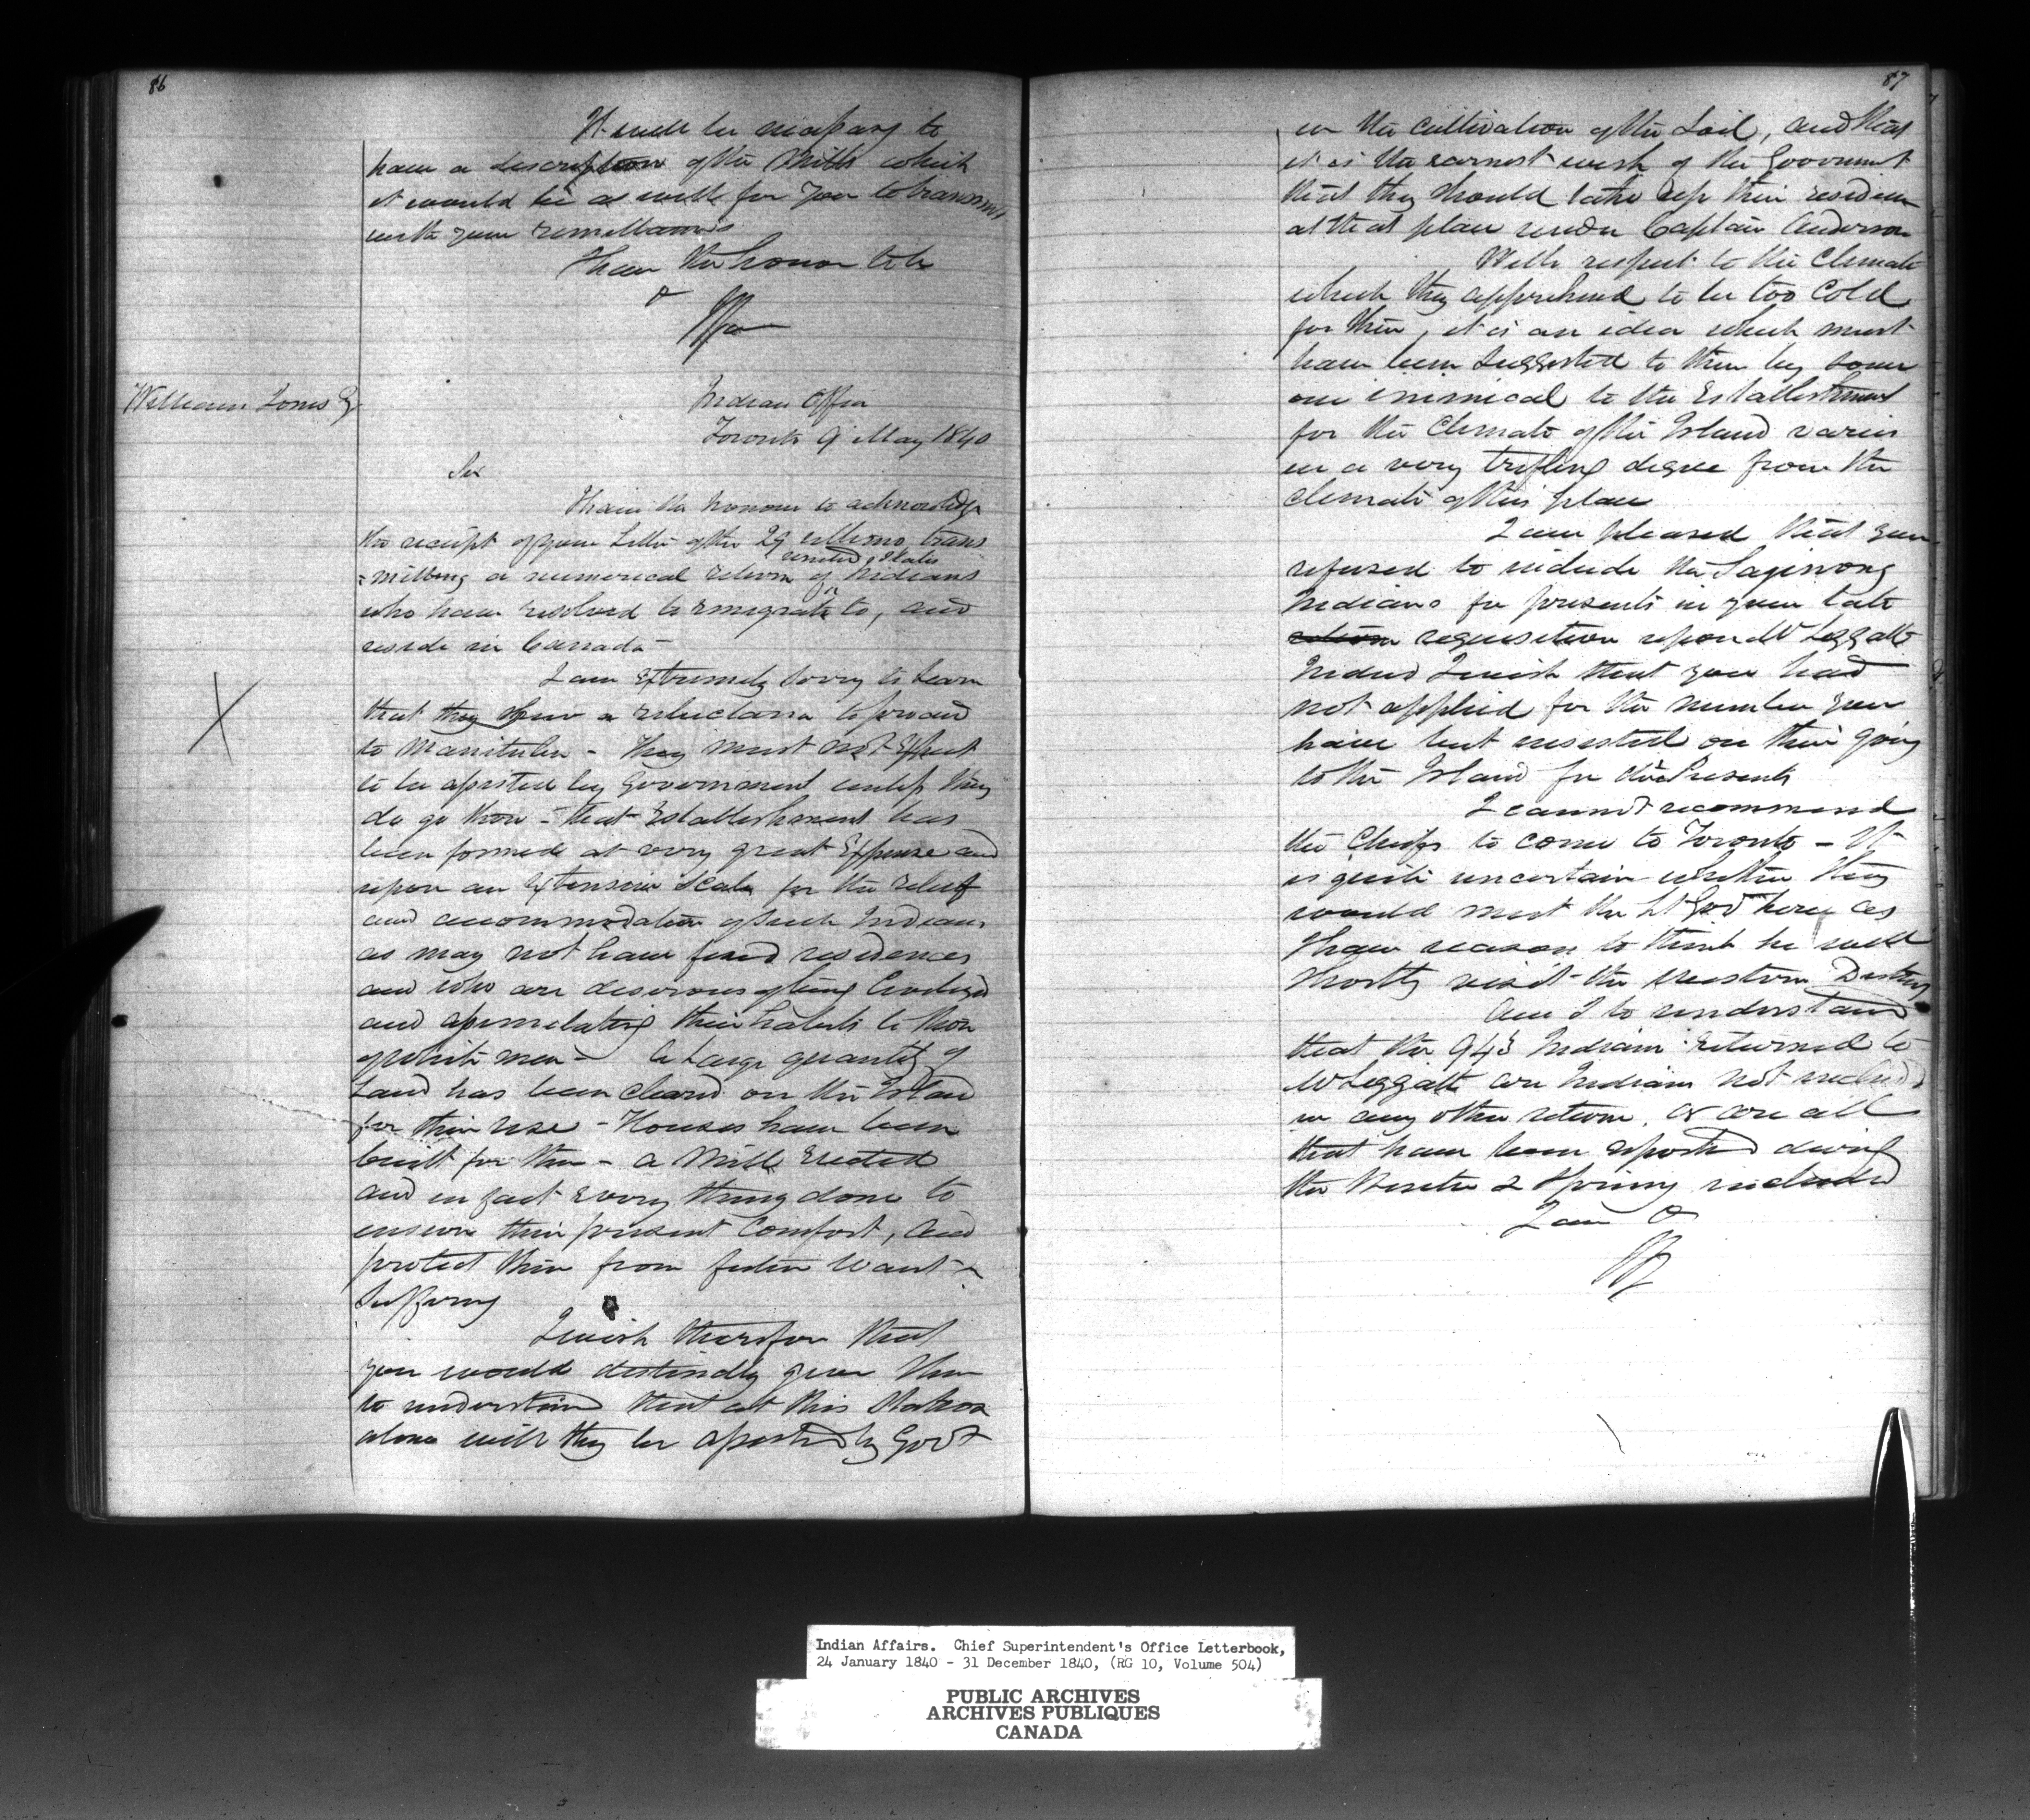 86
It will be necessary to
have a description of the Mills which
it would be as well for you to transmit
with your remittances
I have the honor to be
&
William Jones Esq
Indian Office
Toronto 9 May 1840
Sir
I have the honour to acknowledge
the receipt of your Letter of the 29 ultimo, trans
=mitting a numerical return of United States Indians
who have resolved to emigrate to, and
reside in Canada -
I am extremely sorry to learn
that they shew a reluctance to proceed
to Manitulin - They must not Expect
to be assisted by Government unless they
do go there - that Establishment has
been formed at very great Expense and
upon an Extensive Scale for the relief
and accommodation of such Indians
as may not have fixed residences
and who are desirous of being Civilized
and assimilating their habits to those
of white men - A large quantity of
Land has been cleared on the Island
for their use - Houses have been
built for them - a Mill Erected
and in fact Every thing done to
ensure their present Comfort, and
protect them from future Want &
Suffering
I wish therefore that
you would distinctly give them
to understand that at this Station
alone will they be assisted by Govt
87
in the cultivation of the Soil, and that
it is the earnest wish of the Government
that they should take up their residence
at that place under Captain Anderson
With respect to the Climate
which they apprehend to be too Cold
for them, it is an idea which must
have been suggested to them by some
one inimical to the Establishment
for the Climate of the Island varies
in a very trifling degree from the
climate of this place
I am pleased that you
refused to include the Saginong
Indians for presents in your late
return requisition upon Mr Leggatt
Indeed I wish that you had
not applied for the number you
have but insisted on their going
to the Island for their Presents
I cannot recommend
the Chiefs to come to Toronto - It
is quite uncertain whether they
would meet the Lt Gov here as
I have reason to think he will
shortly visit the Western District
Am I to understand
that the 943 Indians returned to
Mr Leggatt are Indians not included
in any other return, or are all
that have been reported during
the Winter & Spring included
I am &
Indian Affairs. Chief Superintendent's Office Letterbook,
24 January 1840 - 31 December 1840, (RG 10, Volume 504)
PUBLIC ARCHIVES
ARCHIVES PUBLIQUES
CANADA